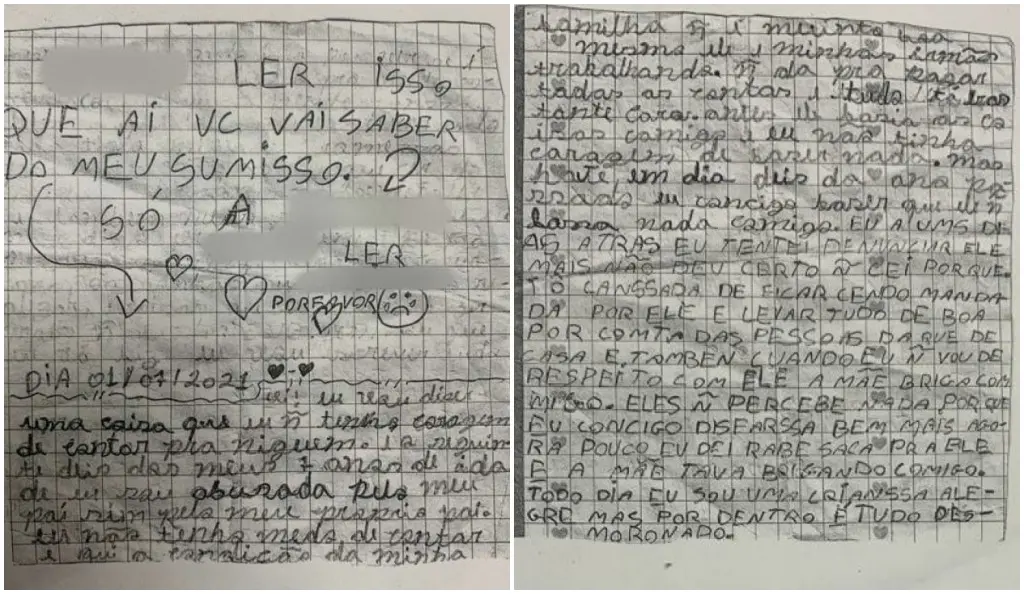 LER ISSO
QUE AÍ VC VAI SABER
DO MEU SUMISSO.
SÓ A
LER
PORFAVOR
DIA 01/07/2021
eu vou dizer
uma coisa que eu ñ tenho coragem
de contar pra niguem. é a seguin
te deis dos meus 7 anos de ida
de eu sou abuzada pelo meu
pai sim pelo meu próprio pai.
eu não tenho medo de contar
é que a condição da minha
familha ñ é muinto boa
mesmo ele e minhas irmãs
trabalhando. ñ da pra pagar
todas as contas e tudo tá
tante caro. antes ele fazia as co
izas comigo e eu não tinha
coragem de fazer nada. mas
hoje em dia deis do ano pa
ssado eu concigo fazer que ele ñ
fassa nada comigo. EU A UMS DI
AS ATRAS EU TENTEI DENUNCIAR ELE
MAIS NÃO DEU CERTO Ñ CEI PORQUE.
TÔ CANSSADA DE FICAR CENDO MANDA
DA POR ELE E LEVAR TUDO DE BOA
POR COMTA DAS PESSOAS DAQUE DE
CASA E TAMBÉN CUANDO EU Ñ VOU DE
RESPEITO COM ELE A MÃE BRIGA COM
MIGO. ELES Ñ PERCEBE NADA PORQUE
EU CONCIGO DISFARSSA BEM MAIS AGO-
RA POUCO EU DEI RABE SACA PRA ELE
E A MÃE TAVA BRIGANDO COMIGO.
TODO DIA EU SOU UMA CRIANSSA ALE-
GRE MAS POR DENTRO É TUDO DES-
MORONADO.